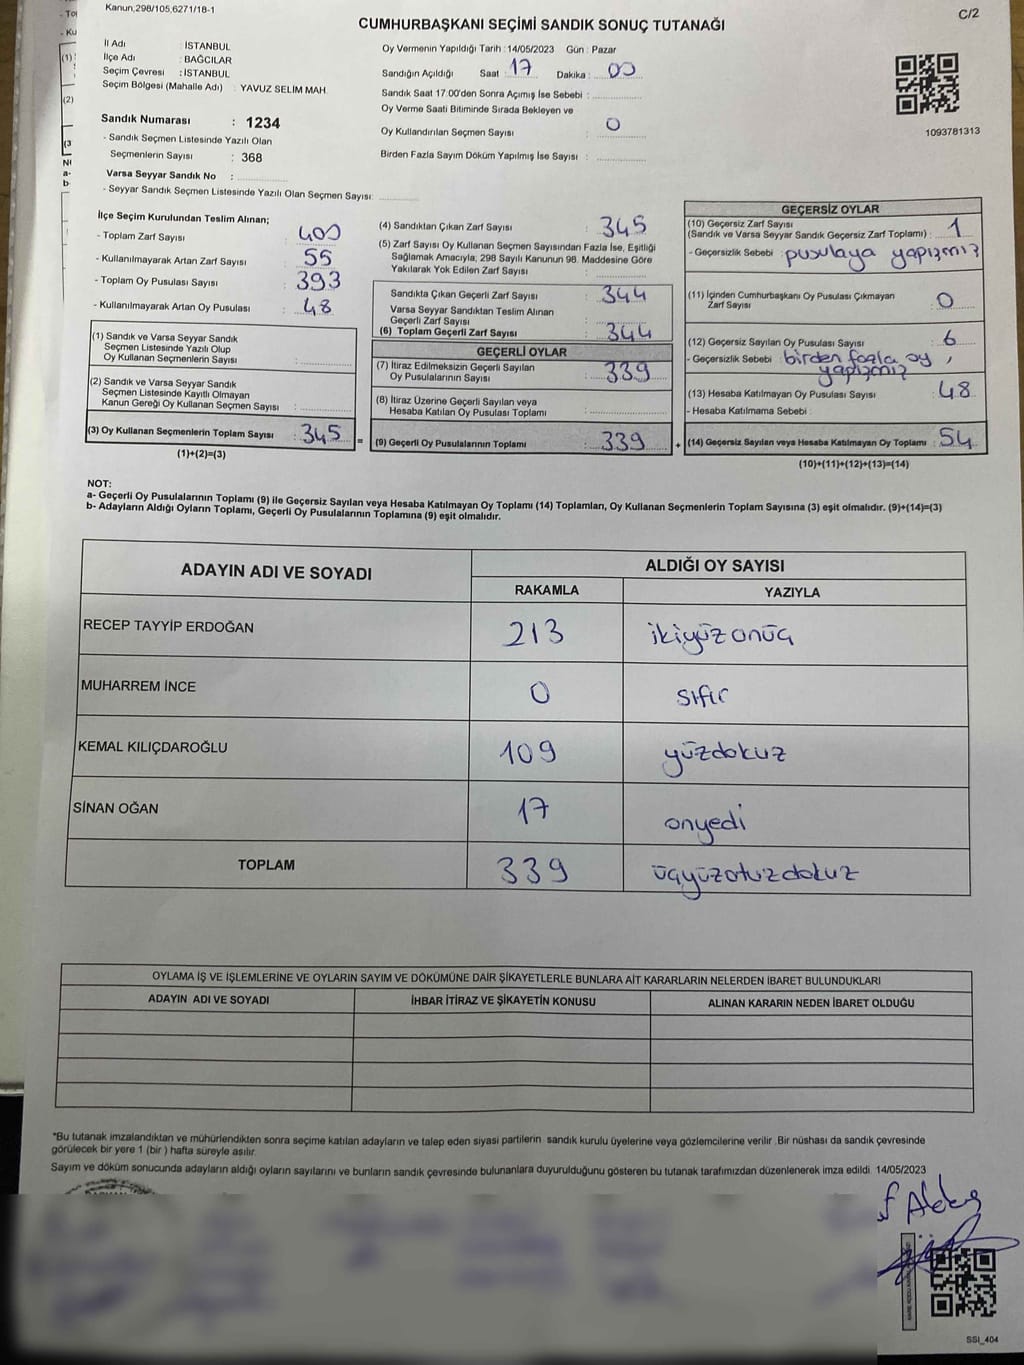 Kanun,298/105,6271/18-1
C/2
CUMHURBAŞKANI SEÇİMİ SANDIK SONUÇ TUTANAĞI
İl Adı : İSTANBUL
İlçe Adı : BAĞCILAR
Seçim Çevresi : İSTANBUL
Seçim Bölgesi (Mahalle Adı) : YAVUZ SELİM MAH.
Sandık Numarası : 1234
- Sandık Seçmen Listesinde Yazılı Olan
Seçmenlerin Sayısı : 368
Varsa Seyyar Sandık No :
- Seyyar Sandık Seçmen Listesinde Yazılı Olan Seçmen Sayısı:
Oy Vermenin Yapıldığı Tarih : 14/05/2023 Gün : Pazar
Sandığın Açıldığı Saat : 17 Dakika : 00
Sandık Saat 17:00'den Sonra Açımış İse Sebebi :
Oy Verme Saati Bitiminde Sırada Bekleyen ve
Oy Kullandırılan Seçmen Sayısı : 0
Birden Fazla Sayım Döküm Yapılmış İse Sayısı :
1093781313
İlçe Seçim Kurulundan Teslim Alınan;
- Toplam Zarf Sayısı : 400
- Kullanılmayarak Artan Zarf Sayısı : 55
- Toplam Oy Pusulası Sayısı : 393
- Kullanılmayarak Artan Oy Pusulası : 48
(1) Sandık ve Varsa Seyyar Sandık
Seçmen Listesinde Yazılı Olup
Oy Kullanan Seçmenlerin Sayısı :
(2) Sandık ve Varsa Seyyar Sandık
Seçmen Listesinde Kayıtlı Olmayan
Kanun Gereği Oy Kullanan Seçmen Sayısı :
(3) Oy Kullanan Seçmenlerin Toplam Sayısı : 345 =
(1)+(2)=(3)
(4) Sandıktan Çıkan Zarf Sayısı : 345
(5) Zarf Sayısı Oy Kullanan Seçmen Sayısından Fazla İse, Eşitliği
Sağlamak Amacıyla, 298 Sayılı Kanunun 98. Maddesine Göre
Yakılarak Yok Edilen Zarf Sayısı :
Sandıkta Çıkan Geçerli Zarf Sayısı : 344
Varsa Seyyar Sandıktan Teslim Alınan
Geçerli Zarf Sayısı :
(6) Toplam Geçerli Zarf Sayısı : 344
GEÇERLİ OYLAR
(7) İtiraz Edilmeksizin Geçerli Sayılan
Oy Pusulalarının Sayısı : 339
(8) İtiraz Üzerine Geçerli Sayılan veya
Hesaba Katılan Oy Pusulası Toplamı :
(9) Geçerli Oy Pusulalarının Toplamı : 339 +
GEÇERSİZ OYLAR
(10) Geçersiz Zarf Sayısı
(Sandık ve Varsa Seyyar Sandık Geçersiz Zarf Toplamı) : 1
- Geçersizlik Sebebi : pusulaya yapızmız
(11) İçinden Cumhurbaşkanı Oy Pusulası Çıkmayan
Zarf Sayısı : 0
(12) Geçersiz Sayılan Oy Pusulası Sayısı : 6
- Geçersizlik Sebebi : birden fazla oy
yapızmız
(13) Hesaba Katılmayan Oy Pusulası Sayısı : 48
- Hesaba Katılmama Sebebi :
(14) Geçersiz Sayılan veya Hesaba Katılmayan Oy Toplamı : 54
(10)+(11)+(12)+(13)=(14)
NOT:
a- Geçerli Oy Pusulalarının Toplamı (9) ile Geçersiz Sayılan veya Hesaba Katılmayan Oy Toplamı (14) Toplamları, Oy Kullanan Seçmenlerin Toplam Sayısına (3) eşit olmalıdır. (9)+(14)=(3)
b- Adayların Aldığı Oyların Toplamı, Geçerli Oy Pusulalarının Toplamına (9) eşit olmalıdır.
ADAYIN ADI VE SOYADI ALDIĞI OY SAYISI
RAKAMLA YAZIYLA
RECEP TAYYİP ERDOĞAN 213 ikiyüzonüç
MUHARREM İNCE 0 sıfır
KEMAL KILIÇDAROĞLU 109 yüzdokuz
SİNAN OĞAN 17 onyedi
TOPLAM 339 üçyüzotuzdokuz
OYLAMA İŞ VE İŞLEMLERİNE VE OYLARIN SAYIM VE DÖKÜMÜNE DAİR ŞİKAYETLERLE BUNLARA AİT KARARLARIN NELERDEN İBARET BULUNDUKLARI
ADAYIN ADI VE SOYADI İHBAR İTİRAZ VE ŞİKAYETİN KONUSU ALINAN KARARIN NEDEN İBARET OLDUĞU
*Bu tutanak imzalandıktan ve mühürlendikten sonra seçime katılan adayların ve talep eden siyasi partilerin sandık kurulu üyelerine veya gözlemcilerine verilir .Bir nüshası da sandık çevresinde
görülecek bir yere 1 (bir ) hafta süreyle asılır.
Sayım ve döküm sonucunda adayların aldığı oyların sayılarını ve bunların sandık çevresinde bulunanlara duyurulduğunu gösteren bu tutanak tarafımızdan düzenlenerek imza edildi. 14/05/2023
SSI_404